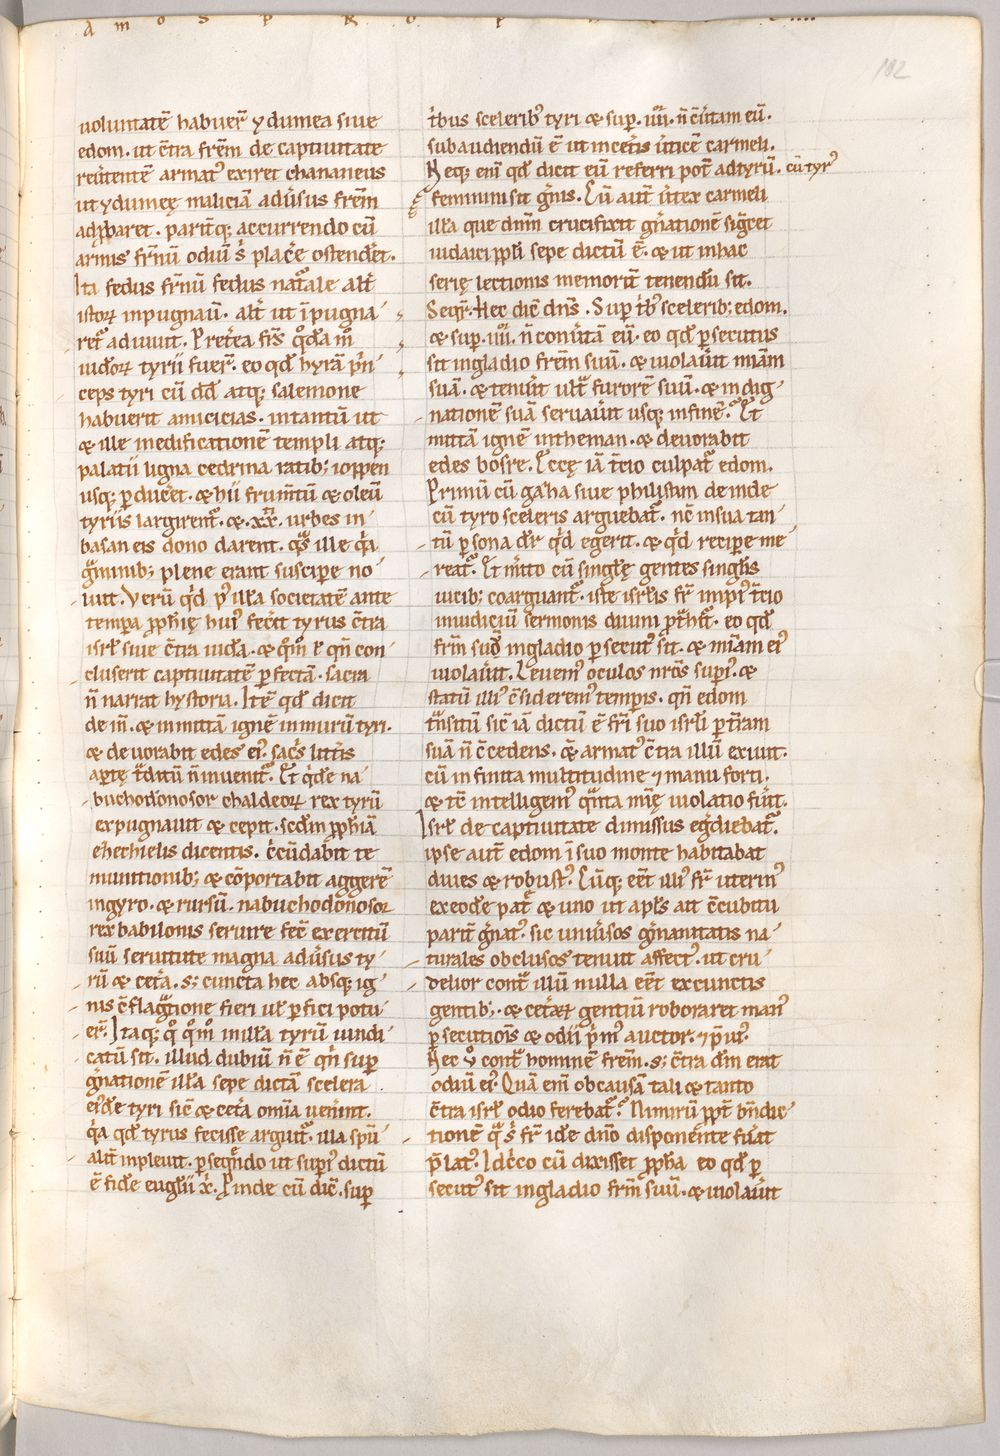 voluntatē habuer̄ ydumea siue
edom. ut c̄tra fr̄em de captiuitate
reu̾tentē armat᾽ exiret chananeus
ut ydumeę maliciā adu̾sus fr̄em
adp̱baret. parit̾q; accurrendo cū
armis fr̄nū odiū s̾ place̾ ostendet̾.
Ita fedus fr̄nū fedus nat̾ale alt̾
istoꝝ inpugnau̾. alt̾ ut īpugna
ret̾ adiuuit. Pret̾ea fr̄s q̊dā m̊
iudeoꝝ tyrii fuer̄. eo qd̄ hyrā p̾n
ceps tyri cū dd̄ atq; salemone
habuerit amicicias. intantū ut
& ille inedificationē templi atq;
palatii ligna cedrina ratib; ioppen
usq; ꝑducet̾. & hii frum̄tū & oleū
tyriis largirent̾. & .xx. urbes in
basan eis dono darent. q̾s ille q̾a
g̾minib; plene erant suscipe no
luit. Verū qd̾ p᾽ illā societatē ante
tempa ꝓph̄ię hui᾽ fec̾it tyrus c̄tra
isrl̄ siue c̄tra iudā. & q̊m̊ ł qn̄ con
cluserit captiuitatē ꝑfectā. sacra
n̄ narrat hystoria. Itē qd̄ dicit
de in̄. & inmittā ignē inmurū tyri.
& deuorabit edes ei᾽. sac̾s litt̾is
aꝑtę t̾ditū n̄ inuenit̾. Et q̾de na
buchodonosor chaldeoꝝ rex tyrū
expugnauit & cepit. scd̄m ꝓph̄iā
ehechielis dicentis. c̾cūdabit te
munitionib; & cōportabit aggerē
ingyro. & rursū. nabuchodōnosor
rex babilonis seruire fec̄ exercitū
suū seruitute magna adu̾sus ty
rū & cet̾a. s; cuncta hec absq; ig
nis c̄flag̾tione fieri uł ꝑfici potu
er̄. Itaq; q̊ q̊m̊ inillā tyrū uindi
catū sit. illud dubiū n̄ ē qn̾ suꝑ
g̾nationē illā sepe dictā scelera
ei᾽de tyri sic̄ & cet̾a om̄ia uenint̾.
q̾a qd̄ tyrus fecisse arguit̾. illa spū
alit̾ inpleuit. ꝑseq̄ndo ut supi᾽ dictū
ē fide eug̾lii x̾. Proinde cū dic̄. suꝑ
t̾bus scelerib᾽ tyri & suꝑ. iiii. n̄ c̄u̾tam eū.
subaudiendū ē ut incet̾is u̾ticē carmeli.
Neq; eni᾽ qd̄ dicit eū referri pot̄ adtyrū. cū tyr᾽
feminini sit g̾nis. Cū aut̄ u̾tex carmeli
illā que dn̄m crucifixit g̾nationē sig̾cet
iudaici ꝓpl̄i sepe dictū ē. & ut inhac
serię lectionis memorit̾ tenendū sit.
Seqr̾. Hec dic̄ dn̄s. Suꝑ t̾b᾽ scelerib; edom.
& suꝑ. iiii. n̄ conu̾tā eū. eo qd̄ ꝑsecutus
sit ingladio fr̄em suū. & uiolau̾it miām
suā. & tenu̾it ult̾ furorē suū. & indig
nationē suā seruau̾it usq; infinē. Et
mittā ignē intheman. & deuorabit
edes bosre. Eccę iā t̾cio culpat̾ edom.
Primū cū gaha siue philistim deinde
cū tyro sceleris arguebat̾. nc̄ insua tan
tū ꝑsona dr̄ qd̾ egerit. & qd̾ recipe me
reat̾. Et m̾ito cū singlę gentes singlis
uicib; coarguant̾. iste isrl̄is fr̄ impi᾽ t̾cio
iniudiciū sermonis diuini p̾t̾hit̾. eo qd̄
fr̄m suū ingladio ꝑsecut᾽ sit. & miam ei᾽
uiolau̾it. Leuem᾽ oculos nr̄os supi᾽. &
statū illi᾽ c̄siderem᾽ tempis. qn̄ edom
t̾nsitū sic̄ iā dictū ē fr̄i suo isrl̄i ꝑ t̾ram
suā n̄ c̄cedens. & armat᾽ c̄tra illū exiuit.
cū infinita multitudine ⁊ manu forti.
& tc̄ intelligem᾽ q̾nta mīę uiolatio fu̾it.
Isrl̄ de captiuitate dimissus eg̾diebat̾.
ipse aut̄ edom ī suo monte habitabat
diues & robust᾽. Cūq; eēt illi᾽ fr̄ uterin᾽
exeode pat̾ & uno ut apl̄s ait c̄cubitu
parit̾ g̾nat᾽. sic uniu̾sos g̾manitatis na
turales obclusos tenuit affect᾽. ut cru
delior cont̾ illū nulla eēt excunctis
gentib;. & cet̾aꝝ gentiū roboraret man᾽
ꝑsecutiois̄ & odii p̾m᾽ auctor. ⁊ p̾ui᾽.
Hec ů cont̾ hominē fr̄em. s; c̄tra dm̄ erat
odiū ei᾽. Quā eni᾽ obcausā tali & tanto
c̄tra isrl̄ odio ferebat̾? Nimirū ꝓpt̾ bn̄dic
tionē q̾ s̾ fr̄ ide dn̄o disponente fu̾at
p̄lat᾽. Idc̾co cū dixisset ꝓph̄a eo qd̄ ꝑ
secut᾽ sit ingladio fr̄m suū. & uiolau̾it